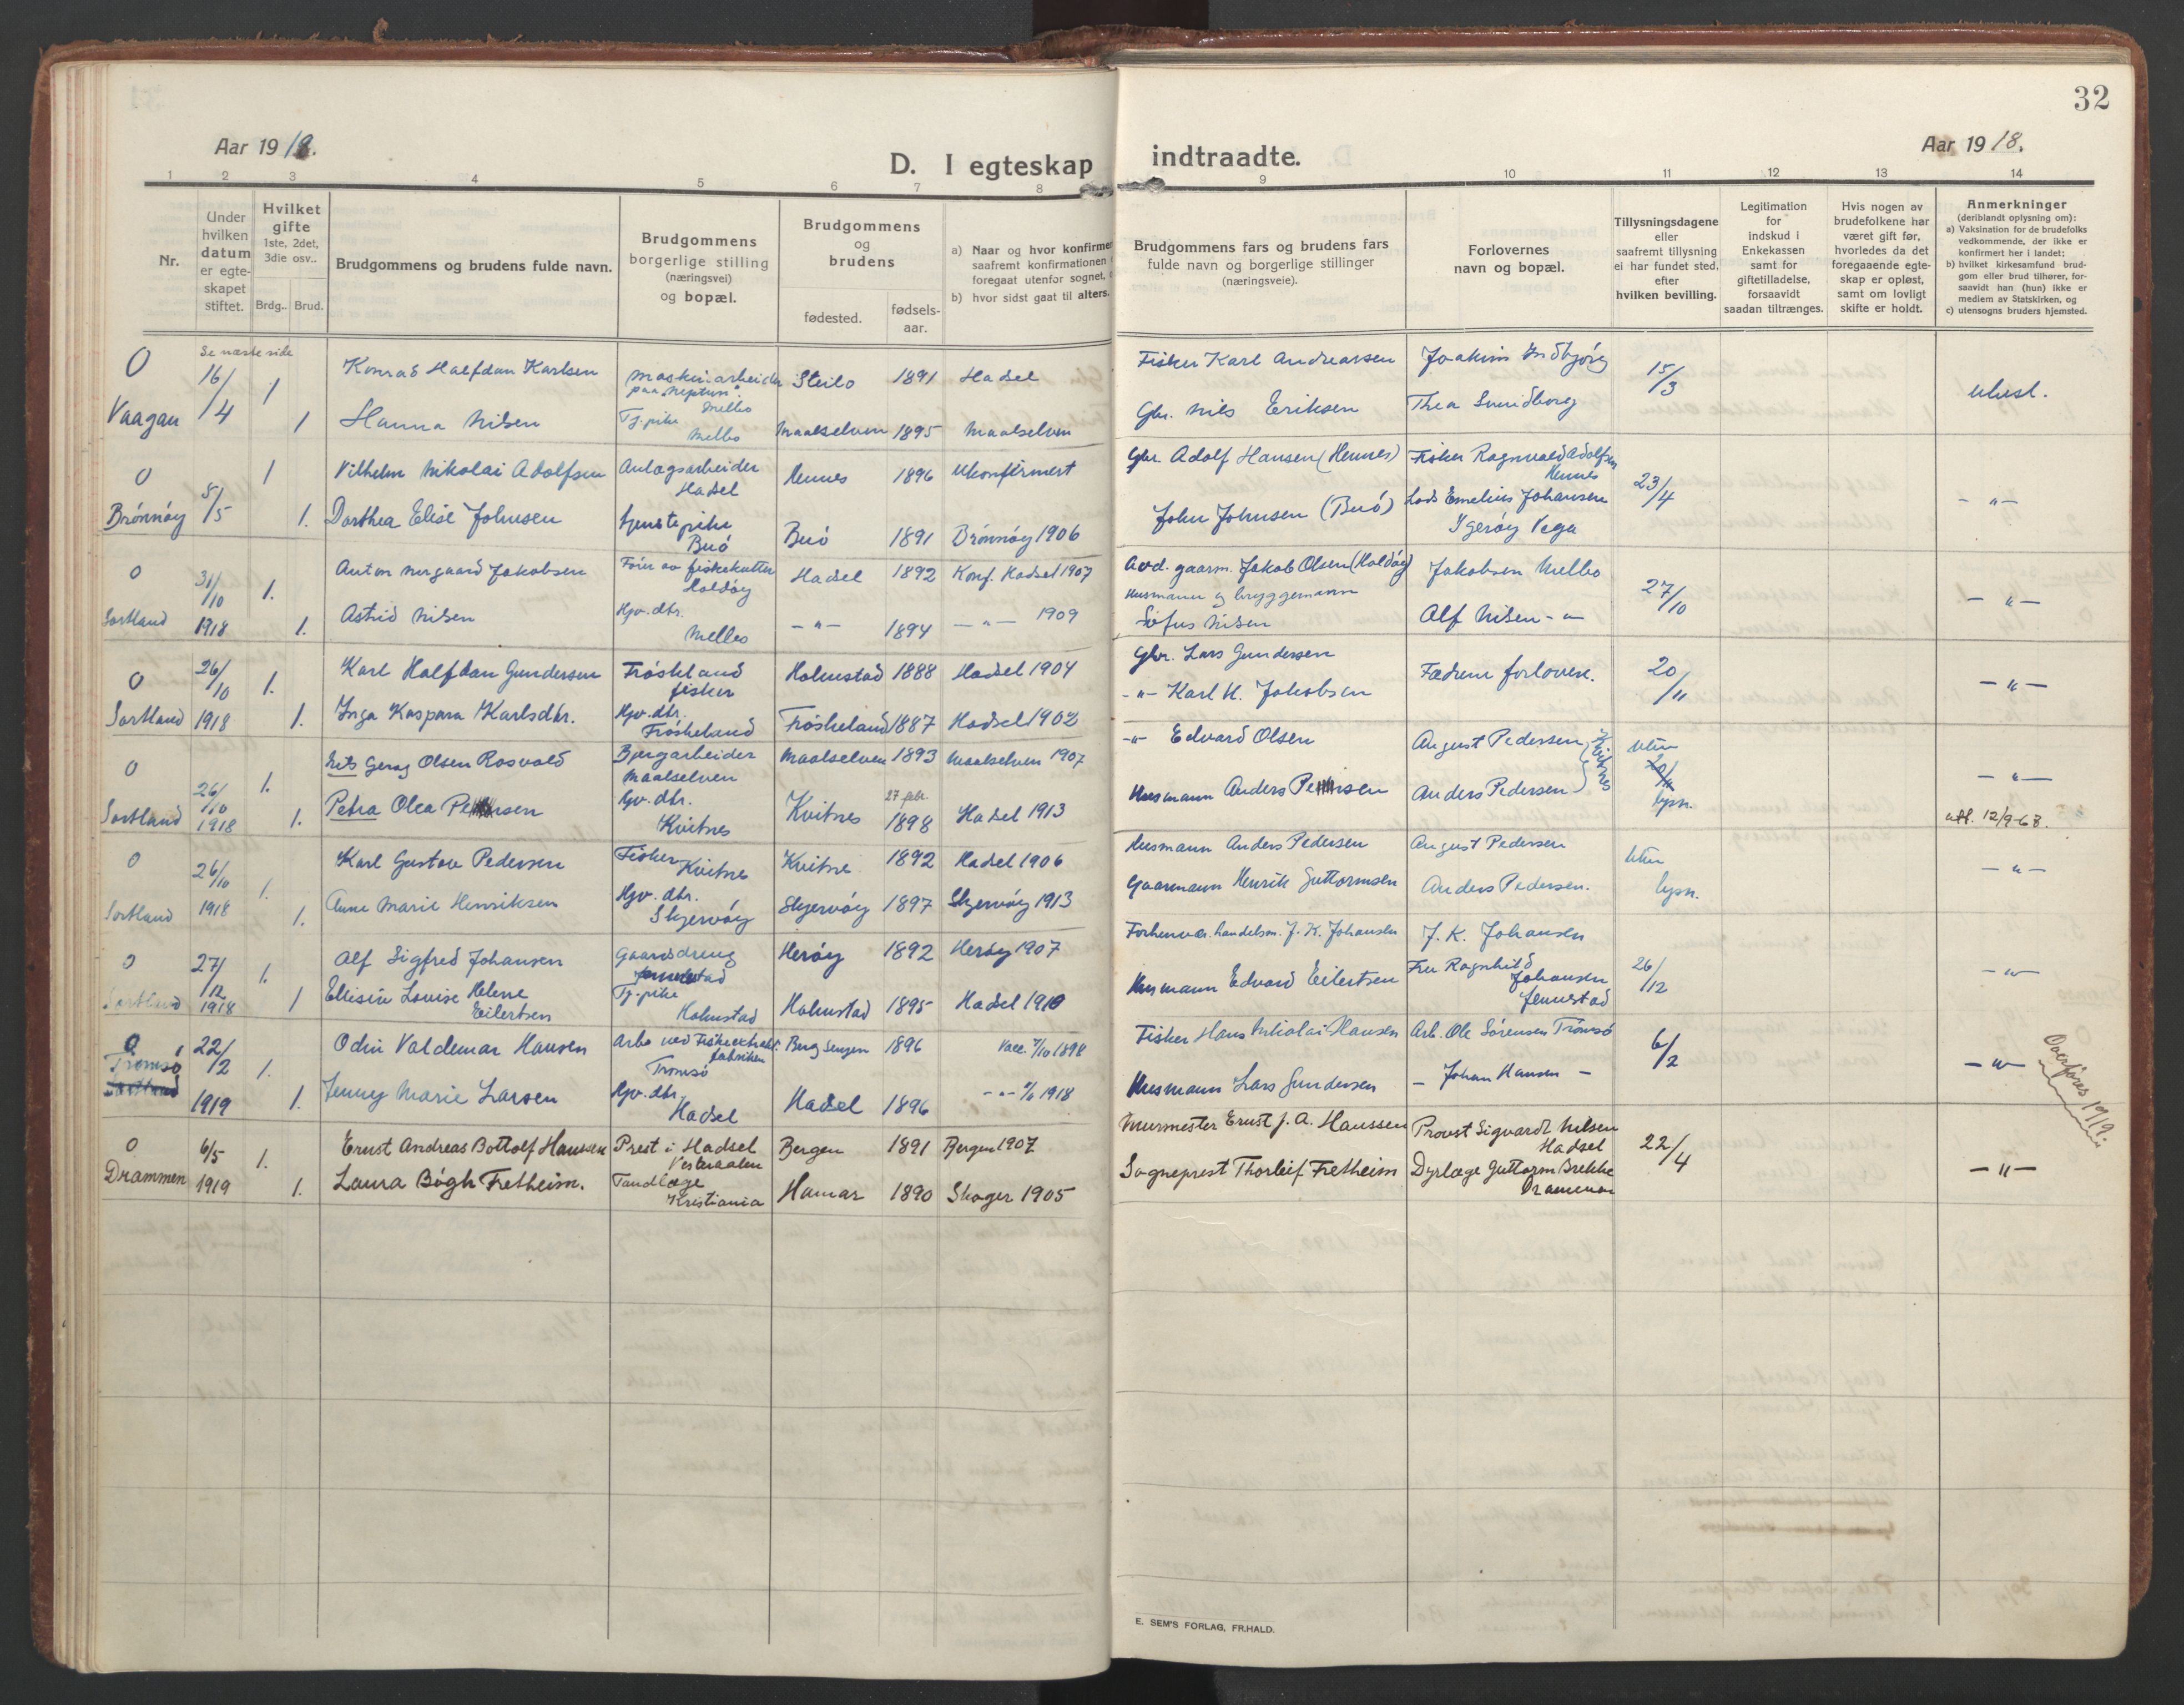 32
Aar 1918.
D. I egteskap indtraadte.
Aar 1918.
1 2 3 4 5 6 7 8 9 10 11 12 13 14
Nr.
Under hvilken datum er egteskapet stiftet.
Hvilket gifte 1ste, 2det, 3die osv..
Brdg.. Brud.
Brudgommens og brudens fulde navn.
Brudgommens borgerlige stilling (næringsvei) og bopæl.
Brudgommens og brudens
fødested. fødselsaar.
a) Naar og hvor konfirmer
saafremt konfirmationen
foregaat utenfor sognet,
b) hvor sidst gaat til alters.
Brudgommens fars og brudens fars
fulde navn og borgerlige stillinger
(næringsveie).
Forlovernes
navn og bopæl.
Tillysningsdagene
eller
saafremt tillysning
ei har fundet sted,
efter
hvilken bevilling.
Legitimation
for
indskud i
Enkekassen
samt for
giftetilladelse,
forsaavidt
saadan tiltrænges.
Hvis nogen av
brudefolkene har
været gift før,
hvorledes da det
foregaaende egte-
skap er opløst,
samt om lovligt
skifte er holdt.
Anmerkninger
(deriblandt oplysning om):
a) Vaksination for de brudefolks
vedkommende, der ikke er
konfirmert her i landet;
b) hvilket kirkesamfund brud-
gom eller brud tilhører, for-
saavidt han (hun) ikke er
medlem av Statskirken, og
c) utensogns bruders hjemsted.
0 Se næste side
16/4 1 Konrad Halfdan Karlsen maskinarbeider paa "Neptun". Melbo Steilo 1891 Hadsel Fisker Karl Andreassen Joakim Indbjörg 15/3 utust.
Vaagan 1 Hanna Nilsen Tj. pike Melbo Maalselven 1895 Maalselven Gbr. Nils Eriksen Thea Sundborg
0 1 Vilhelm Nikolai Adolfsen Anlægsarbeider Hadsel Hennes 1896 Ukonfirmert Gbr. Adolf Hansen (Hennes) Fisker Ragnvald Adolfsen Hennes 23/4 - " -
Brønnøy 5/5 1. Dorthea Elise Johnsen tjenstepike Buö Buö 1891 Brønnøy 1906 John Johnsen (Buö) Lods Emelius Johansen Ygeröy Vega
0 31/10 1. Anton Norgaard Jakobsen Förer av fiskekutter Haldöy Hadsel 1892 Konf. Hadsel 1907 Avd. gaarm. Jakob Olsen (Haldöy) Jakobsen Melbo 27/10 - " -
Sortland 1918 1. Astrid Nilsen Hjv. dtr. Melbo - " - 1894 - " - 1909 Husmann og bryggemann Sofus Nilsen Alf Nilsen - " -
0 26/10 1. Karl Halfdan Gundersen Fröskeland fisker Holmstad 1888 Hadsel 1904 Gbr. Lars Gundersen Fædrene forlovere. 20/11 - " -
Sortland 1918 1. Inga Kaspara Karlsdtr. Hjv. dtr. Fröskeland Fröskeland 1887 Hadsel 1902 - " - Karl H. Jakobsen
0 1. Olsen Rosvold Bjergarbeider Maalselven Maalselven 1893 Maalselven 1907 - " - Edvard Olsen August Pedersen Kvitnes Uten - " -
Sortland 26/10 1918 1. Petra Olea Hjv. dtr. Kvitnes Kvitnes 27 febr. 1898 Hadsel 1913 Husmann Anders Anders Pedersen lysn. att. 12/9-68.
0 26/10 1. Karl Gustav Pedersen Fisker Kvitnes Kvitne 1892 Hadsel 1906 Husmann Anders Pedersen August Pedersen Uten - " -
Sortland 1918 1. Anne Marie Henriksen Hjv. dtr. Skjervöy Skjervöy 1897 Skjervöy 1913 Gaarmann Henrik Guttormsen Anders Pedersen. lysn.
0 27/12 1. Alf Sigfred Johansen Gaardsdreng Jennestad Heröy 1892 Heröy 1907 Forhenvær. handelsm. J. K. Johansen J. K. Johansen 26/12 - " -
Sortland 1918 1 Ellisin Louise Helene Eilertsen Tj. pike Holmstad Holmstad 1895 Hadsel 1910 Husmann Edvard Eilertsen Fru Ragnhild Johansen Jennestad
0 22/2 1. Odin Valdemar Hansen Arb. ved Fiskeextrakt. fabriken Tromsö Berg Senjen 1896 Vacc. 7/10 1898 Fisker Hans Nikolai Hansen Arb. Ole Sörensen Tromsö 6/2 - " - Overföres 1919.
Tromsö Sortland 1919 1. Jenny Marie Larsen Hjv. dtr. Hadsel Hadsel 1896 1918 Husmann Lars Gundersen - Johan Hansen -
0 6/5 1. Ernst Andreas Bottolf Hanssen Prest i Hadsel Vesteraalen Bergen 1891 Bergen 1907 Murmester Ernst J. A. Hanssen Provst Sigvardt Nilsen Hadsel 22/4 - " -
Drammen 1919 1. Laura Bögh Fretheim. Tandlæge Kristiania Hamar 1890 Skoger 1905 Sogneprest Thorleif Fretheim Dyrlæge Guttorm Brekke Drammen
E. SEM'S FORLAG, FR.HALD.